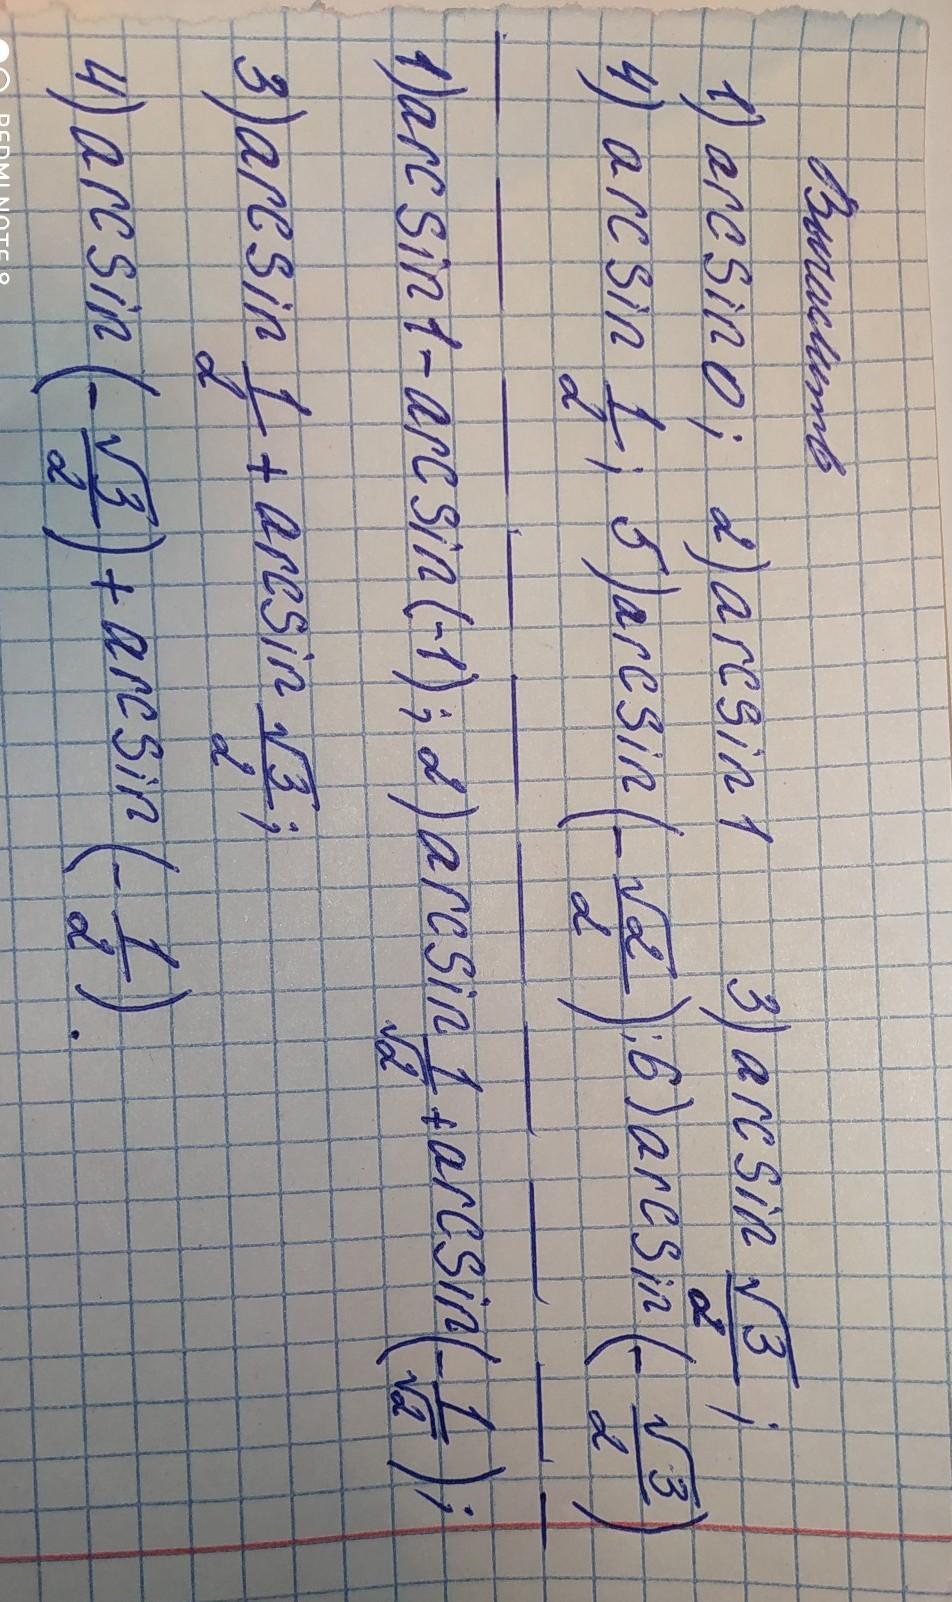 Вычислить
1) arcsin 0; 2) arcsin 1 3) arcsin √3/2;
4) arcsin 1/2; 5) arcsin (-√2/2); 6) arcsin (-√3/2)
1) arcsin 1 - arcsin (-1); 2) arcsin 1/√2 + arcsin (-1/√2);
3) arcsin 1/2 + arcsin √3/2;
4) arcsin (-√3/2) + arcsin (-1/2).
REDMI NOTE 8